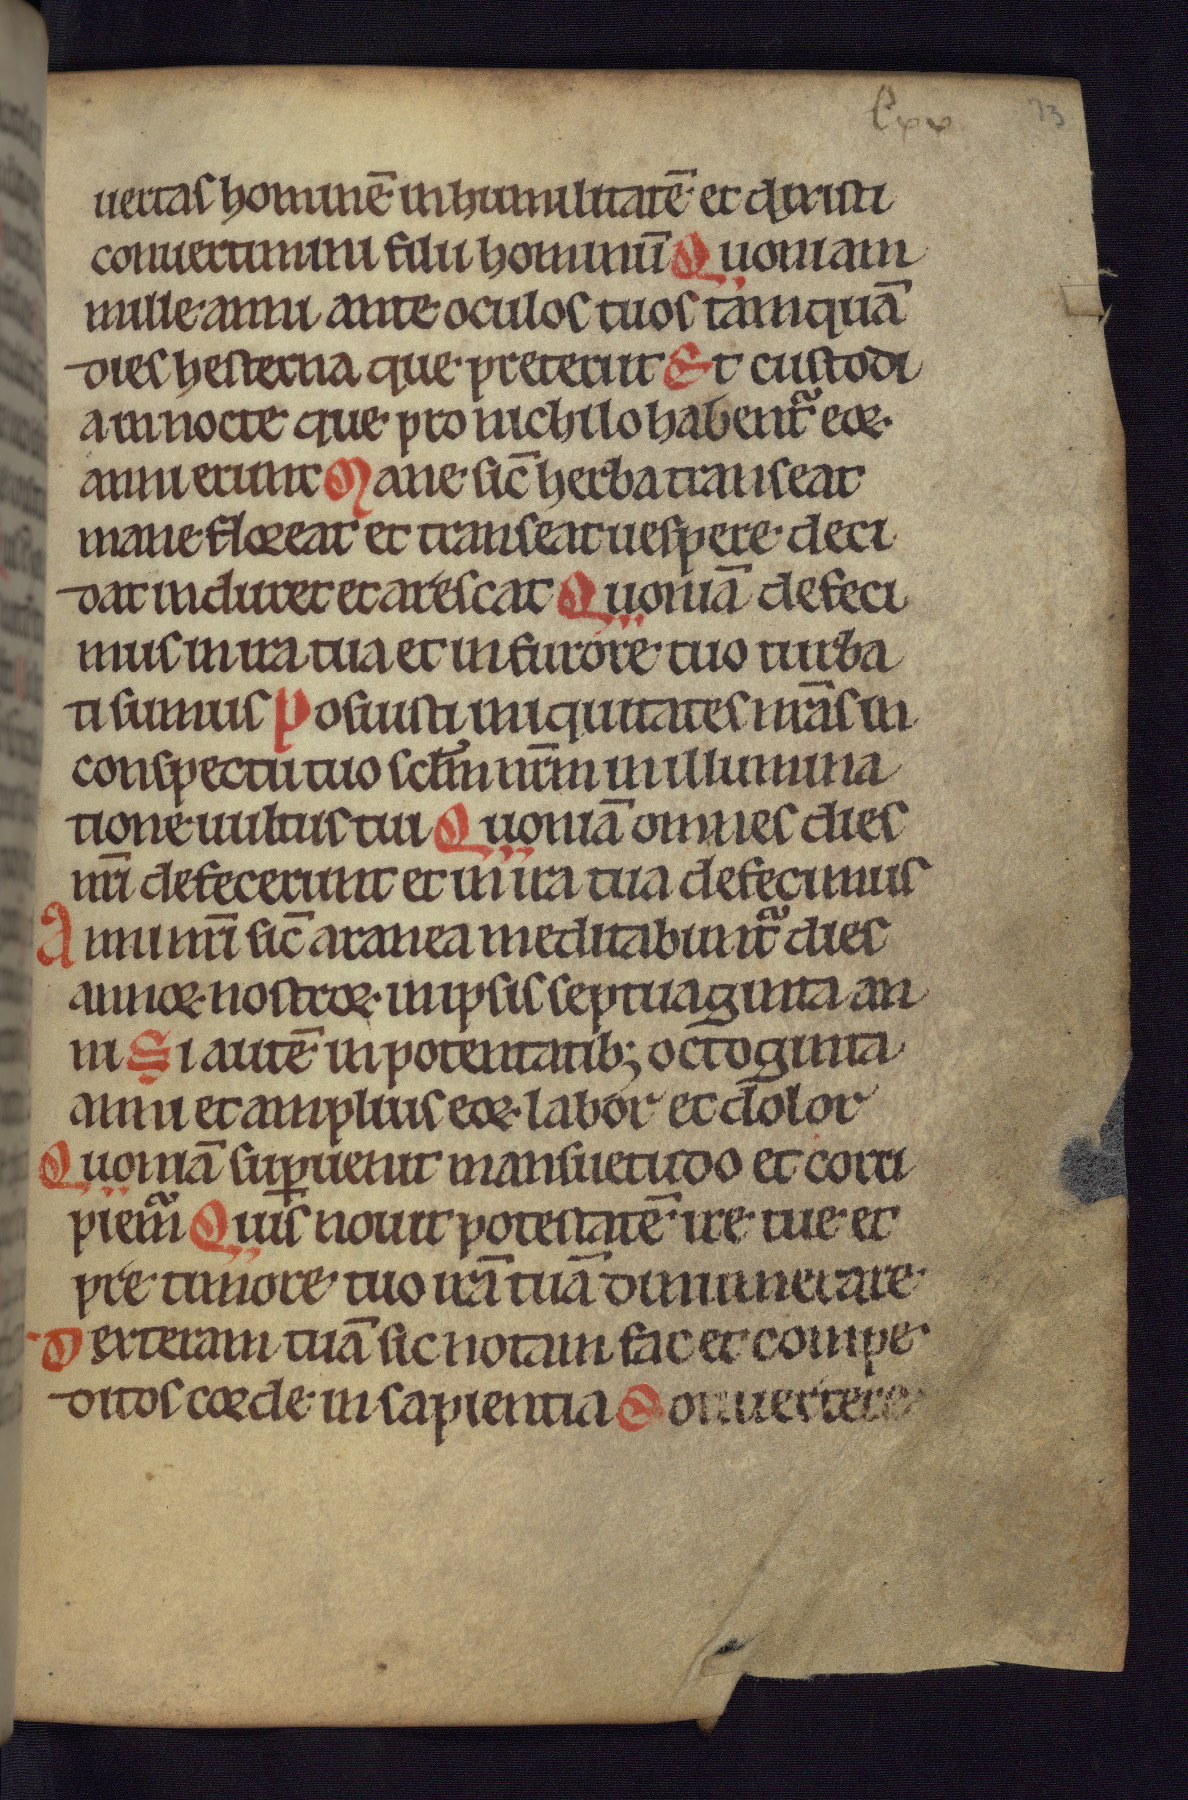 lxv 73
uertas hominē in humilitatē et dixisti
conuertimini filii hominū Quoniam
mille anni ante oculos tuos tamquā
dies hesterna que preteriit Et custodi
a in nocte que pro nichilo habentᷓ eoꝝ
anni erunt Mane sic̄ herba transeat
mane floreat et transeat uespere deci
dat induret et arescat Quoniā defeci
mus in ira tua et in furore tuo turba
ti sumus Posuisti iniquitates nrās in
conspectu tuo sclm̄ nrm̄ in illumina
tione uultus tui Quoniā omnes dies
nrī defecerunt et in ira tua defecimus
Anni nrī sic̄ aranea meditabuntᷓ dies
annoꝝ nostroꝝ in ipsis septuaginta an
ni Si autē in potentatib; octoginta
anni et amplius eoꝝ labor et dolor
Quoniā suꝑuenit mansuetudo et corri
piemᷓ Quis nouit potestatē ire tue et
pre timore tuo irā tuā dinumerare
Dexteram tuā sic notam fac et compe
ditos corde in sapientia Conuertere